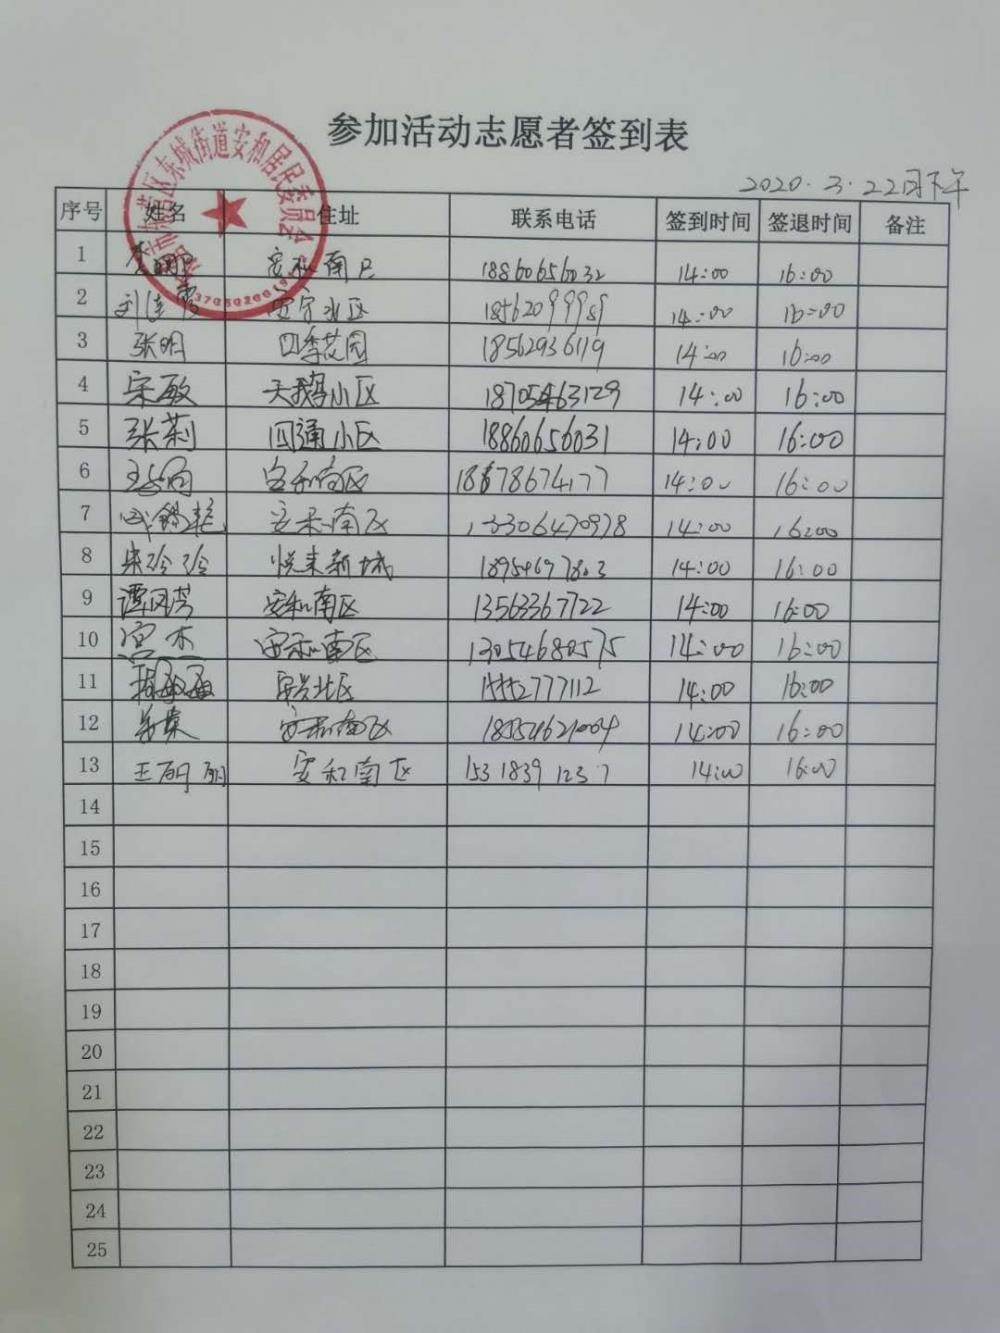 参加活动志愿者签到表
2020.3.22日下午
东城街道安和居民委员会
序号 姓名 住址 联系电话 签到时间 签退时间 备注
1 安和南区 18860656032 14:00 16:00
2 刘 安宁北区 14:00 16:00
3 张明 四季花园 18562936119 14:00 16:00
4 宋敏 天鹅小区 18705463129 14:00 16:00
5 张莉 四通小区 18860656031 14:00 16:00
6 安和南区 14:00 16:00
7 安和南区 13306470978 14:00 16:00
8 宋玲玲 悦来新城 18954697803 14:00 16:00
9 谭风芳 安和南区 13563367722 14:00 16:00
10 宫杰 安和南区 13054680575 14:00 16:00
11 安兴北区 14:00 16:00
12 安和南区 14:00 16:00
13 王丽丽 安和南区 15318391237 14:00 16:00
14
15
16
17
18
19
20
21
22
23
24
25